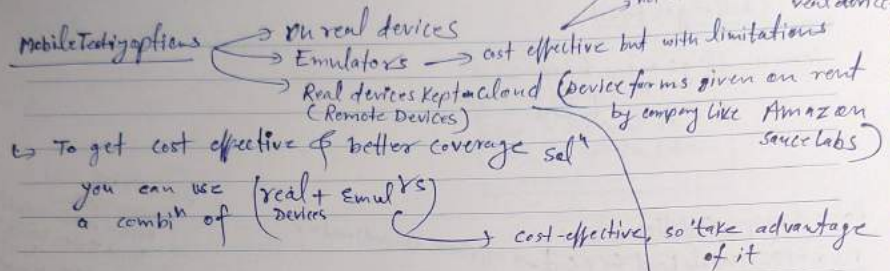 Mobile Testing options → on real devices
→ Emulators → cost effective but with limitations
→ Real devices kept on cloud (Device farms given on rent
(Remote Devices)
by company like Amazon
Saucelabs)
↳ To get cost effective & better coverage solⁿ
you can use (real + Emulʳs)
Devices
a combiⁿ of
→ cost-effective, so take advantage
of it